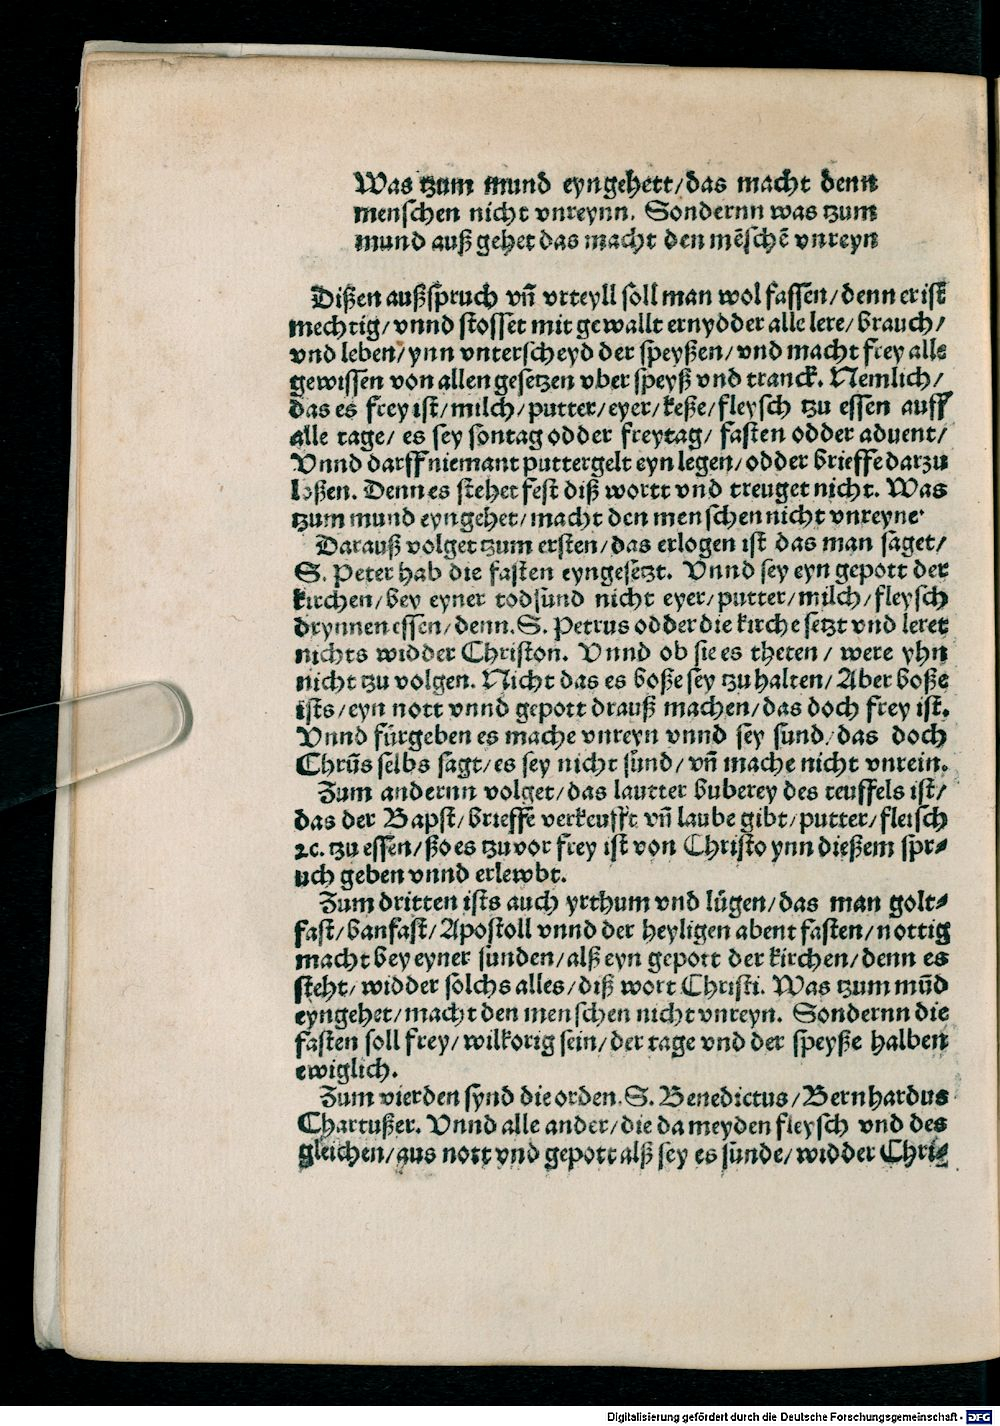 Was tzum mund eyngehett/das macht denn
menschen nicht vnreynn. Sondernn was tzum
mund auß gehet das macht den mēschē vnreyn
Dißen außspruch vñ vrteyll soll man wol fassen/denn er ist
mechtig/vnnd stosset mit gewallt ernydder alle lere/brauch/
vnd leben/ynn vnterscheyd der speyßen/vnd macht frey alle
gewissen von allen gesetzen vber speyß vnd tranck. Nemlich/
das es frey ist/milch/putter/eyer/keße/fleysch tzu essen auff
alle tage/ es sey sontag odder freytag/ fasten odder aduent/
Vnnd darff niemant puttergelt eyn legen/odder brieffe darzu
loßen. Denn es stehet fest diß wortt vnd treuget nicht. Was
tzum mund eyngehet/macht den menschen nicht vnreyne·
Darauß volget tzum ersten/das erlogen ist das man saget/
S. Peter hab die fasten eyngesetzt. Vnnd sey eyn gepott der
kirchen/bey eyner todsund nicht eyer/putter/milch/fleysch
drynnen essen/denn. S. Petrus odder die kirche setzt vnd leret
nichts widder Christon. Vnnd ob sie es theten/ were yhn
nicht tzu volgen. Nicht das es boße sey tzu halten/Aber boße
ists/eyn nott vnnd gepott drauß machen/das doch frey ist.
Vnnd fürgeben es mache vnreyn vnnd sey sund/das doch
Chrūs selbs sagt/es sey nicht sünd/vñ mache nicht vnrein.
Zum andernn volget/das lautter buberey des teuffels ist/
das der Bapst/brieffe verkeufft vñ laube gibt/putter/fleisch
ꝛc. tzu essen/ßo es tzuvor frey ist von Christo ynn dießem spr⸗
uch geben vnnd erlewbt.
Zum dritten ists auch yrthum vnd lügen/das man golt⸗
fast/banfast/Apostoll vnnd der heyligen abent fasten/nottig
macht bey eyner sunden/alß eyn gepott der kirchen/denn es
steht/widder solchs alles/diß wort Christi. Was tzum mūd
eyngehet/macht den menschen nicht vnreyn. Sondernn die
fasten soll frey/wilkorig sein/der tage vnd der speyße halben
ewiglich.
Zum vierden synd die orden. S. Benedictus/Bernhardus
Chartußer. Vnnd alle ander/die da meyden fleysch vnd des
gleichen/aus nott vnd gepott alß sey es sunde/widder Chri⸗
Digitalisierung gefördert durch die Deutsche Forschungsgemeinschaft - DFG